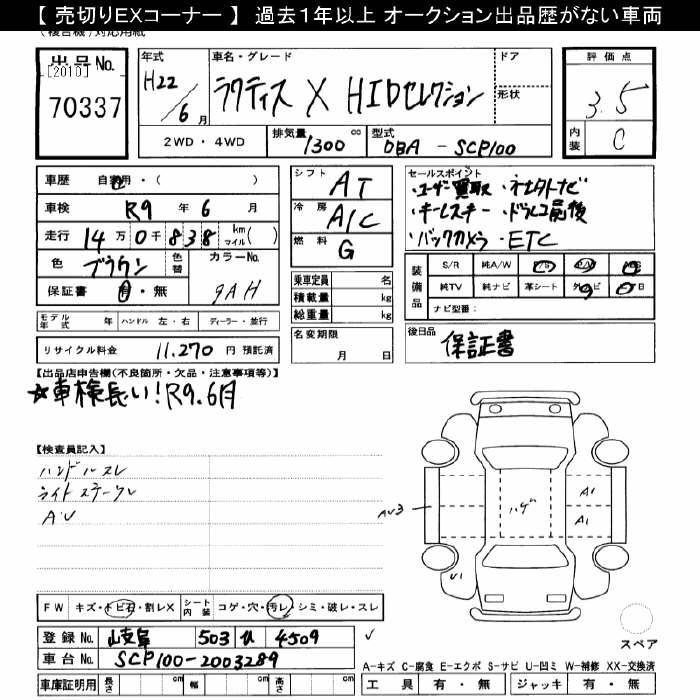 【 売切りEXコーナー 】 過去１年以上 オークション出品歴がない車両
(複合機)対応用紙
出品No.
[2010]
70337
年式
H22
/6月
車名・グレード
ラクティス X HIDセレクション
ドア
形状
評価点
3.5
内装
C
2WD・4WD
排気量
1300 cc
型式
DBA - SCP100
車歴 自家用・( )
車検 R9 年 6 月
走行 14万0千838 km マイル( )
色 ブラウン 色替 カラーNo.
保証書 有・無 9AH
シフト AT
冷房 A/C
燃料 G
セールスポイント
・ユーザー買取 ・社外ナビ
・キーレスキー ・ドラレコ前後
・バックカメラ ・ETC
乗車定員 名
積載量 kg
総重量 kg
装備品 S/R 純A/W
純TV 純ナビ 革シート
ナビ型番:
モデル年式 年 ハンドル 左・右 ディーラー・並行
名変期限
月 日
後日品 保証書
リサイクル料金 11,270 円 預託済
【出品店申告欄(不良箇所・欠品・注意事項等)】
☆車検長い!R9.6月
【検査員記入】
ハンドルスレ
ライトステークレ
A・U
AU3
ハゲ
A1
A1
U1
FW キズ・トビ石・割レX シート内装 コゲ・穴・汚レ・シミ・破レ・スレ
登録No. 岐阜 503 4509
車台No. SCP100-2003289
スペア
A-キズ C-腐食 E-エクボ S-サビ U-凹ミ W-補修 XX-交換済
車庫証明用 長さ cm 幅 cm 高さ cm
工具 有・無 ジャッキ 有・無